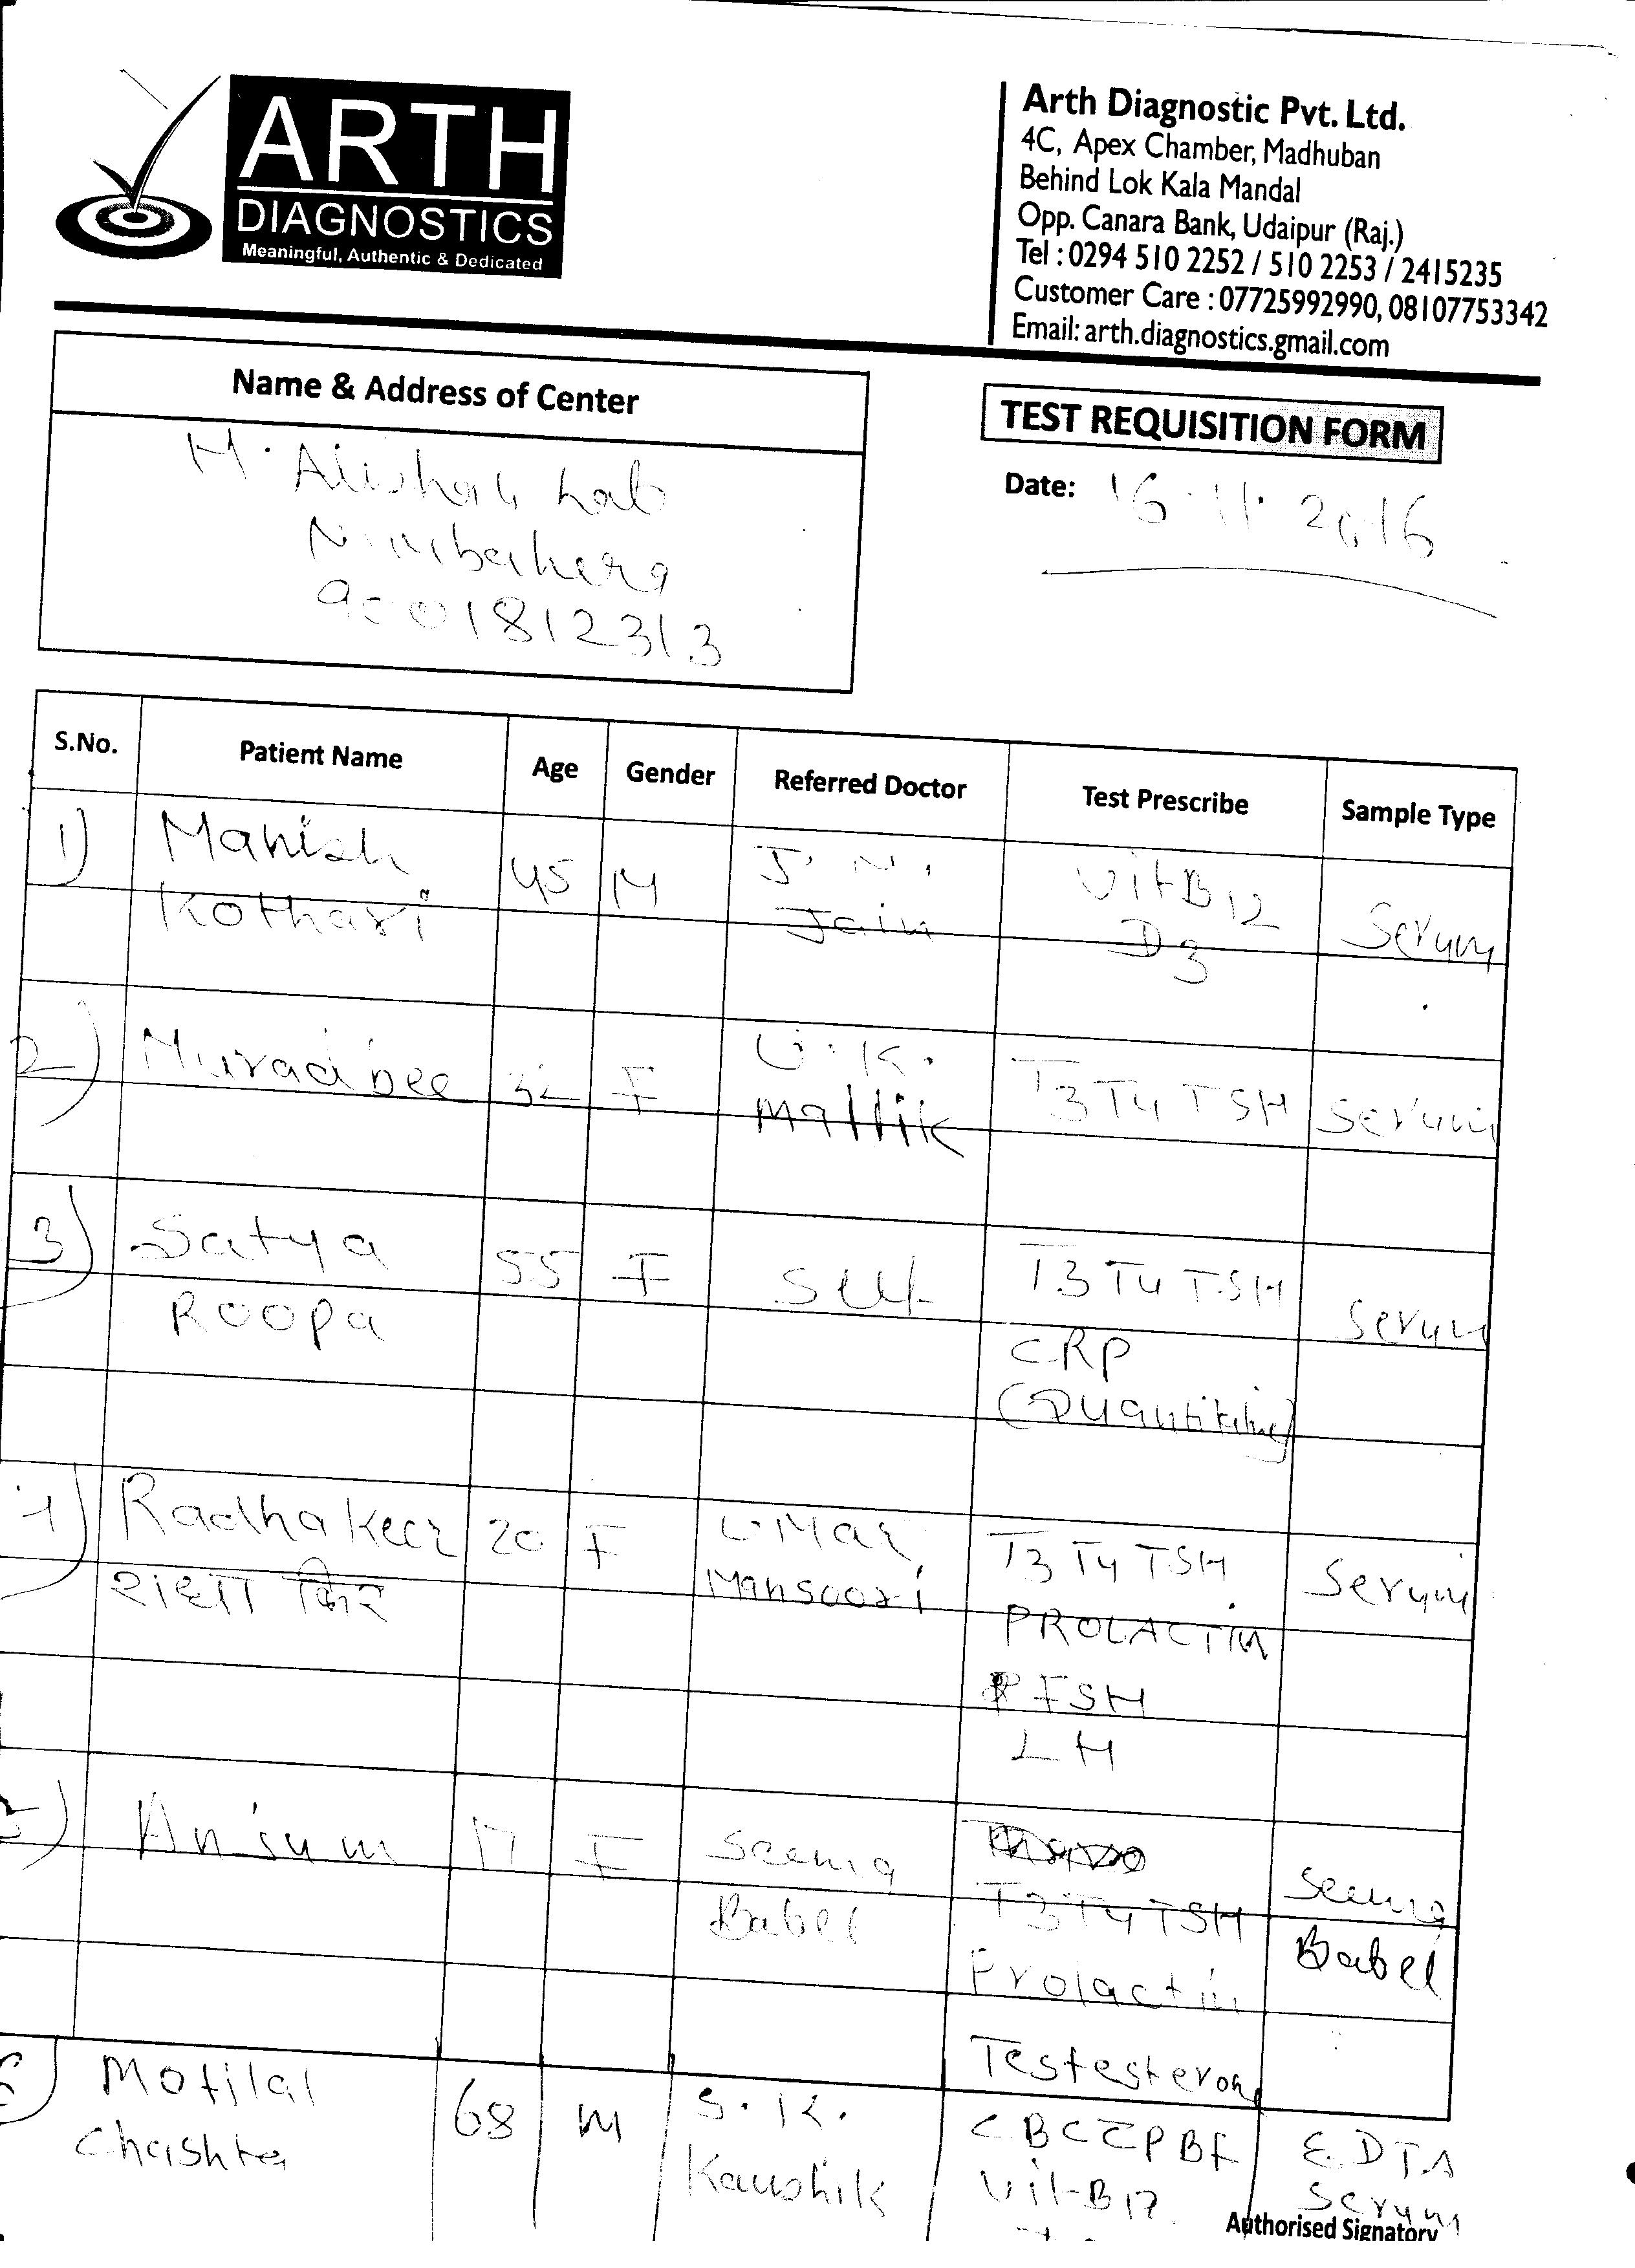 ARTH
DIAGNOSTICS
Meaningful, Authentic & Dedicated
Arth Diagnostic Pvt. Ltd.
4C, Apex Chamber, Madhuban
Behind Lok Kala Mandal
Opp. Canara Bank, Udaipur (Raj.)
Tel : 0294 510 2252 / 510 2253 / 2415235
Customer Care : 07725992990, 08107753342
Email: arth.diagnostics.gmail.com
Name & Address of Center
M. Lab
Nimbahera
9001812313
TEST REQUISITION FORM
Date: 16.11.2016
S.No. Patient Name Age Gender Referred Doctor Test Prescribe Sample Type
1) Manish 45 M J. N. Vit B12 Serum
Kothari Jain D3
2) Murad bee 32 F U.K. T3 T4 TSH Serum
Mallik
3) Satya 55 F Self T3 T4 TSH Serum
Roopa CRP
(Quantitative)
4) Radha Keer 20 F Umar T3 T4 TSH Serum
राधा किर Mansoori PROLACTIN
FSH
LH
5) Anjum 17 F Seema Seema
Babel T3 T4 TSH Babel
Prolactin
Testesteron
6) Motilal 68 M S.K. CBC PBF EDTA
Chashta Kaushik Vit-B12 Serum
Authorised Signatory